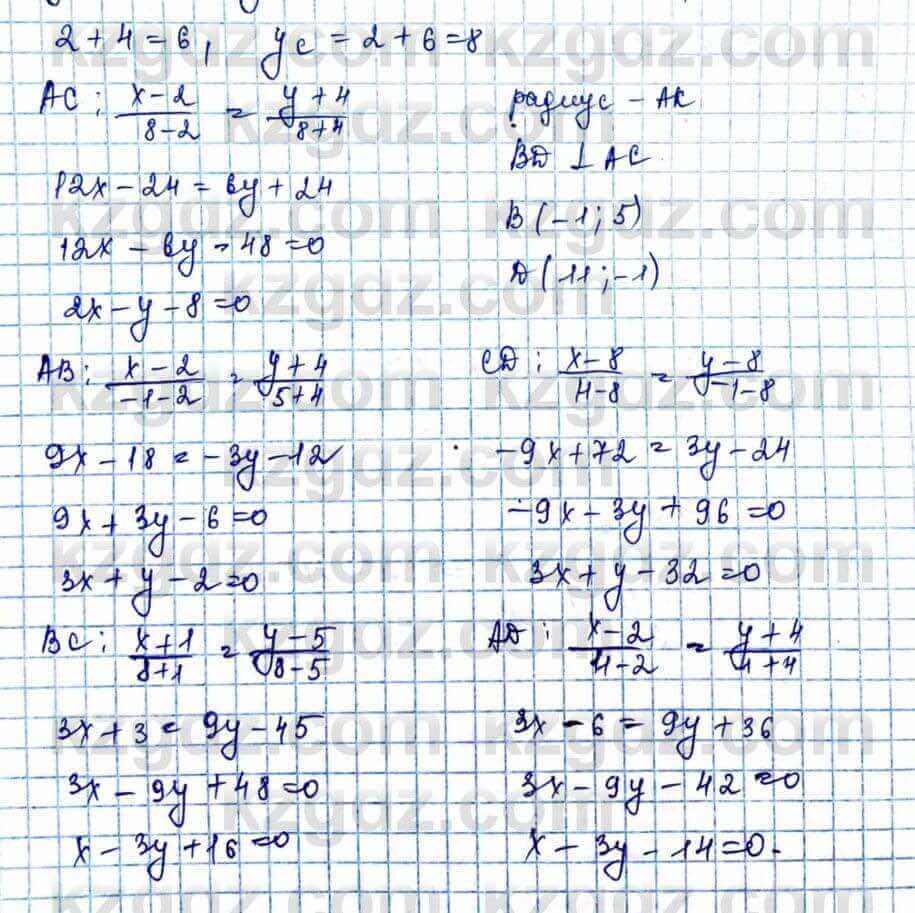 2 + 4 = 6, yc = 2 + 6 = 8
AC: (x - 2)/(8 - 2) = (y + 4)/(8 + 4)
12x - 24 = 6y + 24
12x - 6y - 48 = 0
2x - y - 8 = 0
радиус - AK
BD ⊥ AC
B(-1; 5)
D(11; -1)
AB: (x - 2)/(-1 - 2) = (y + 4)/(5 + 4)
9x - 18 = -3y - 12
9x + 3y - 6 = 0
3x + y - 2 = 0
CD: (x - 8)/(11 - 8) = (y - 8)/(-1 - 8)
-9x + 72 = 3y - 24
-9x - 3y + 96 = 0
3x + y - 32 = 0
BC: (x + 1)/(8 + 1) = (y - 5)/(8 - 5)
3x + 3 = 9y - 45
3x - 9y + 48 = 0
x - 3y + 16 = 0
AD: (x - 2)/(11 - 2) = (y + 4)/(4 + 4)
3x - 6 = 9y + 36
3x - 9y - 42 = 0
x - 3y - 14 = 0.
kzgdz.com